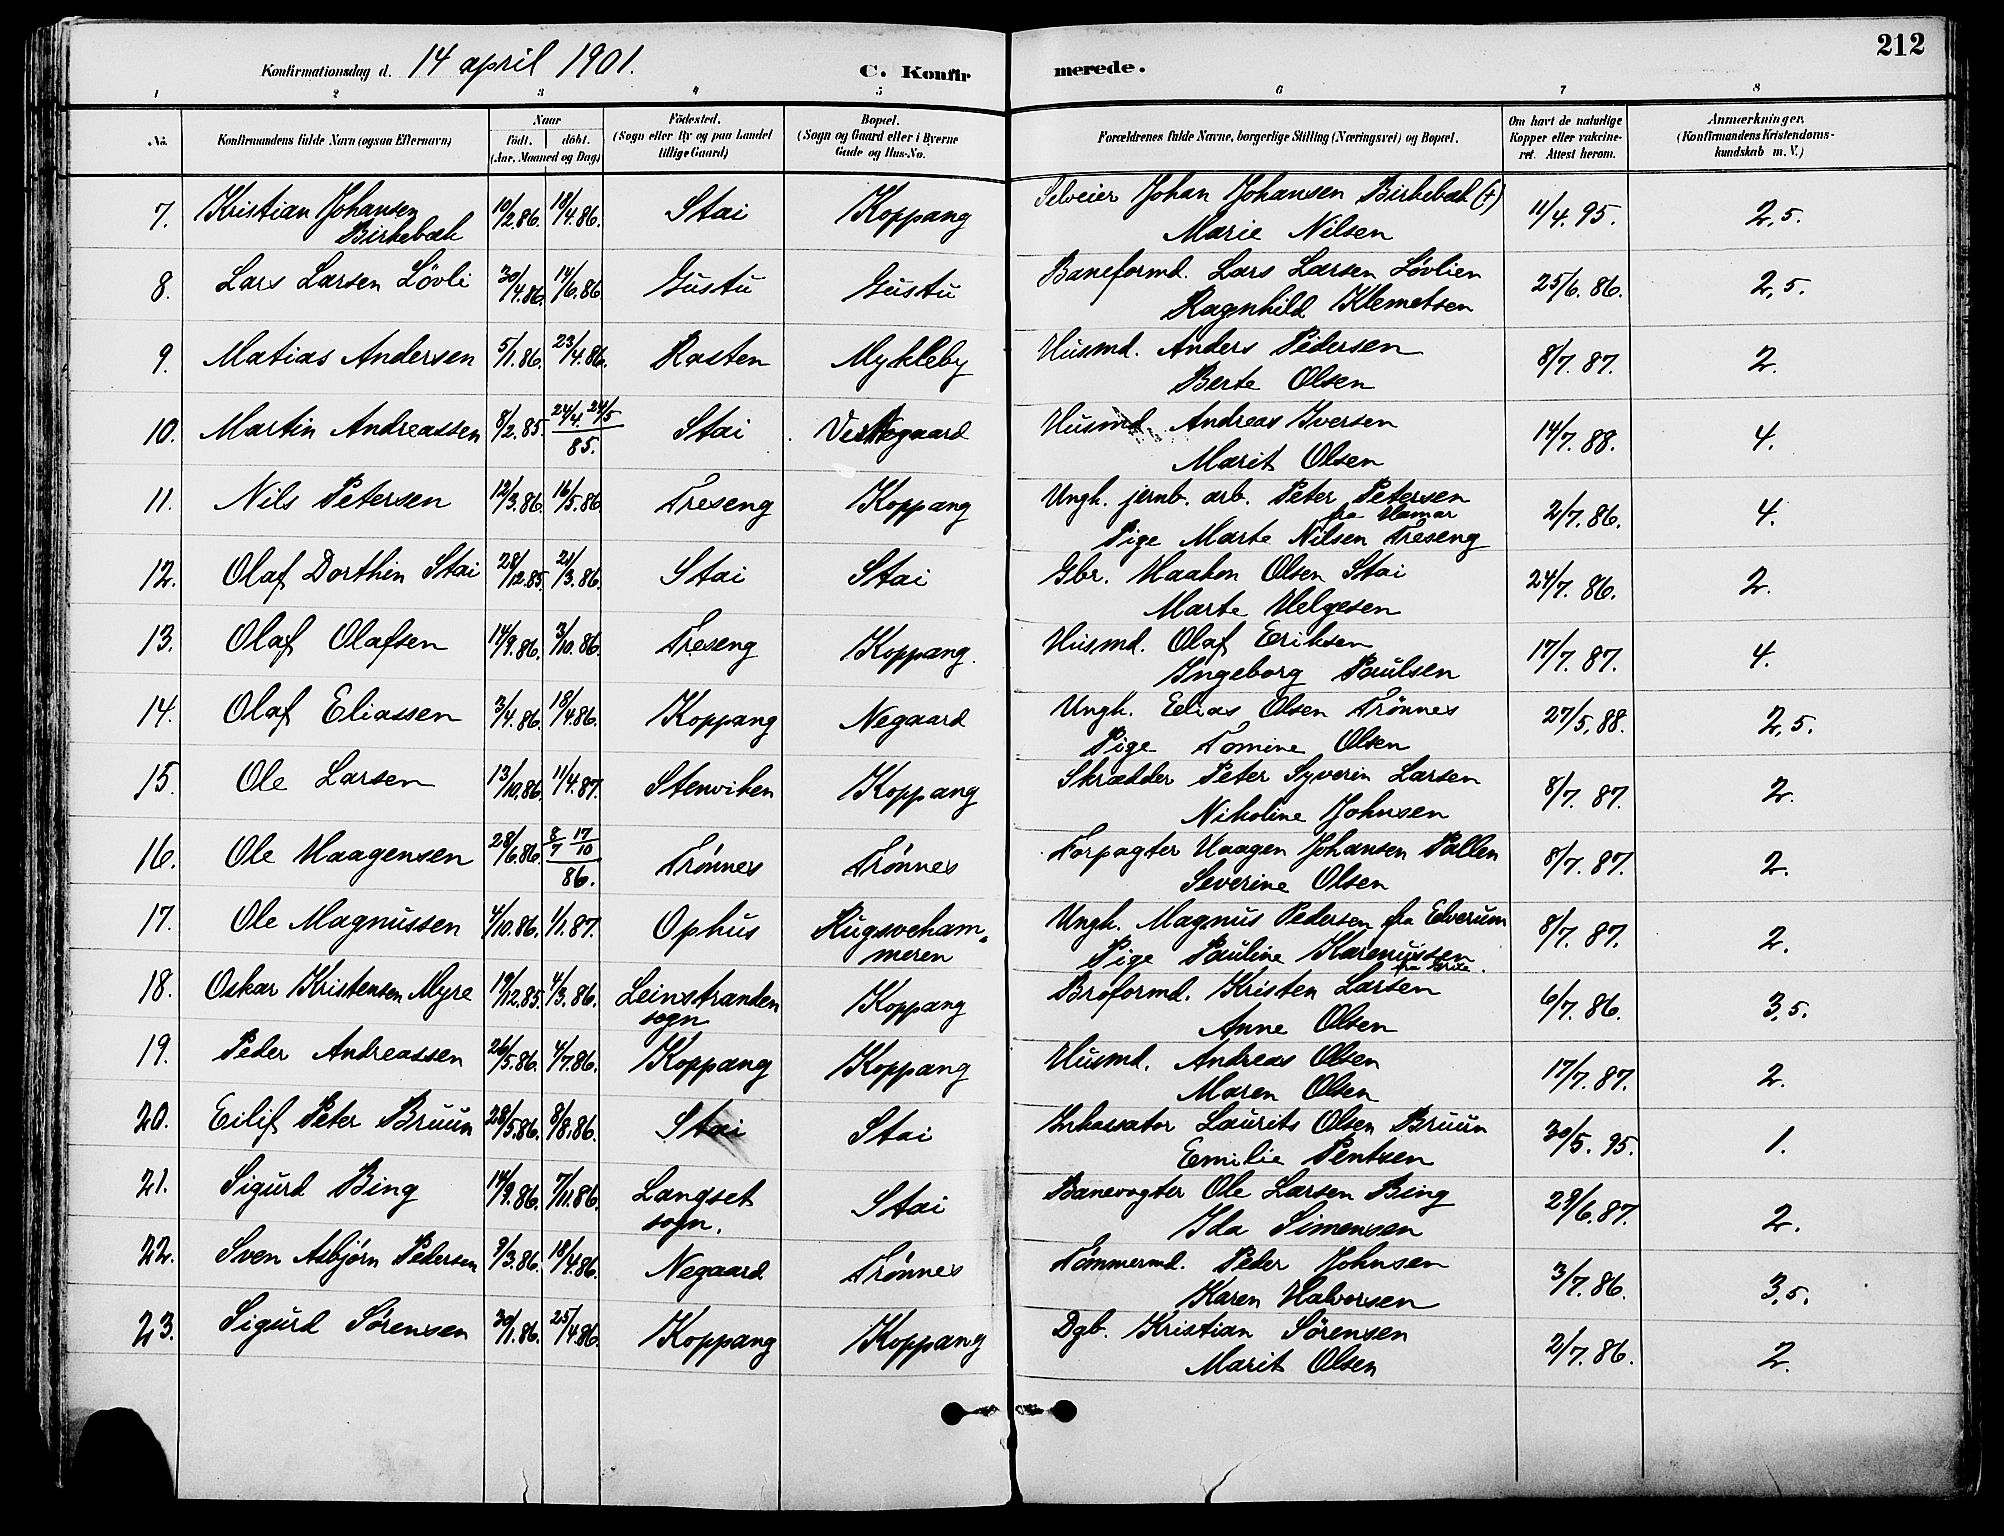 212
Konfirmationsdag d. 14 april 1901. C. Konfirmerede.
1 2 3 4 5 6 7 8
No. Konfirmandens fulde Navn (ogsaa Efternavn) Naar født. døbt. (Aar, Maaned og Dag) Fødested. (Sogn eller By og paa Landet tillige Gaard) Bopæl. (Sogn og Gaard eller i Byerne Gade og Hus-No. Forældrenes fulde Navne, borgerlige Stilling (Næringsvei) og Bopæl. Om havt de naturlige Kopper eller vakcineret. Attest herom. Anmærkninger. (Konfirmandens Kristendomskundskab m. V.)
7. Kristian Johansen Birkebæk 10/2.86. 18/4.86. Stai Koppang Selveier Johan Johansen Birkebæk (+) 11/4.95. 2,5.
Marie Nilsen
8. Lars Larsen Lövli 30/4.86. 14/6.86 Gustu Gustu Baneformd. Lars Larsen Lövlien 25/6.86. 2,5.
Ragnhild Klemetsen
9. Matias Andersen 5/1.86. 23/4.86. Rasten Mykleby Husmd. Anders Pedersen 8/7.87. 2.
Berte Olsen
10. Martin Andreassen 8/2.85. 24/4. 24/5 85. Stai Vestegaard Husmd. Andreas Iversen 14/7.88. 4.
Marit Olsen
11. Nils Petersen 12/3.86. 16/5.86 Treseng Koppang Ungk. jernb. arb. Peter Petersen fra Hamar 2/7.86. 4.
Pige Marte Nilsen Treseng
12. Olaf Dorthin Stai 28/12.85. 21/3.86. Stai Stai Gbr. Haakon Olsen Stai 24/7.86. 2.
Marte Helgesen
13. Olaf Olafsen 14/9.86. 3/10.86. Treseng Koppang. Husmd. Olaf Eriksen 17/7.87. 4.
Ingeborg Paulsen
14. Olaf Eliassen 3/4.86. 18/4.86. Koppang Negaard Ungk. Elias Olsen Trönnes 27/5.88. 2,5.
Pige Tomine Olsen
15. Ole Larsen 13/10.86. 11/4.87. Stenviken Koppang Skrædder Peter Syverin Larsen 8/7.87. 2.
Nikoline Johnsen
16. Ole Haagensen 28/6.86. 8/7 17/10 86. Trönnes Trönnes Forpagter Haagen Johansen Pallen 8/7.87. 2.
Severine Olsen
17. Ole Magnussen 4/10.86. 1/1.87. Ophus Rugsvehammeren Ungk. Magnus Pedersen fra Elverum 8/7.87. 2.
Pige Pauline Karenussen
18. Oskar Kristensen Myre 19/12.85. 4/3.86. Leinstranden sogn Koppang Broformd. Kristen Larsen 6/7.86. 3,5.
Anne Olsen
19. Peder Andreassen 26/5.86. 4/7.86. Koppang Koppang Husmd. Andreas Olsen 17/7.87. 2.
Maren Olsen
20. Eilif Peter Bruun 28/5.86. 8/8.86. Stai Stai Inkassator Laurits Olsen Bruun 30/5.95. 1.
Emilie Pentsen
21. Sigurd Bing 14/9.86. 7/11.86. Langset sogn. Stai Banevogter Ole Larsen Bing 29/6.87. 2.
Ida Simensen
22. Sven Asbjörn Pedersen 9/3.86. 18/4.86. Negaard Trönnes Tömmermd. Peder Johnsen 3/7.86. 3,5.
Karen Halvorsen
23. Sigurd Sörensen 30/1.86. 25/4.86. Koppang Koppang Dgb. Kristian Sörensen 2/7.86. 2.
Marit Olsen